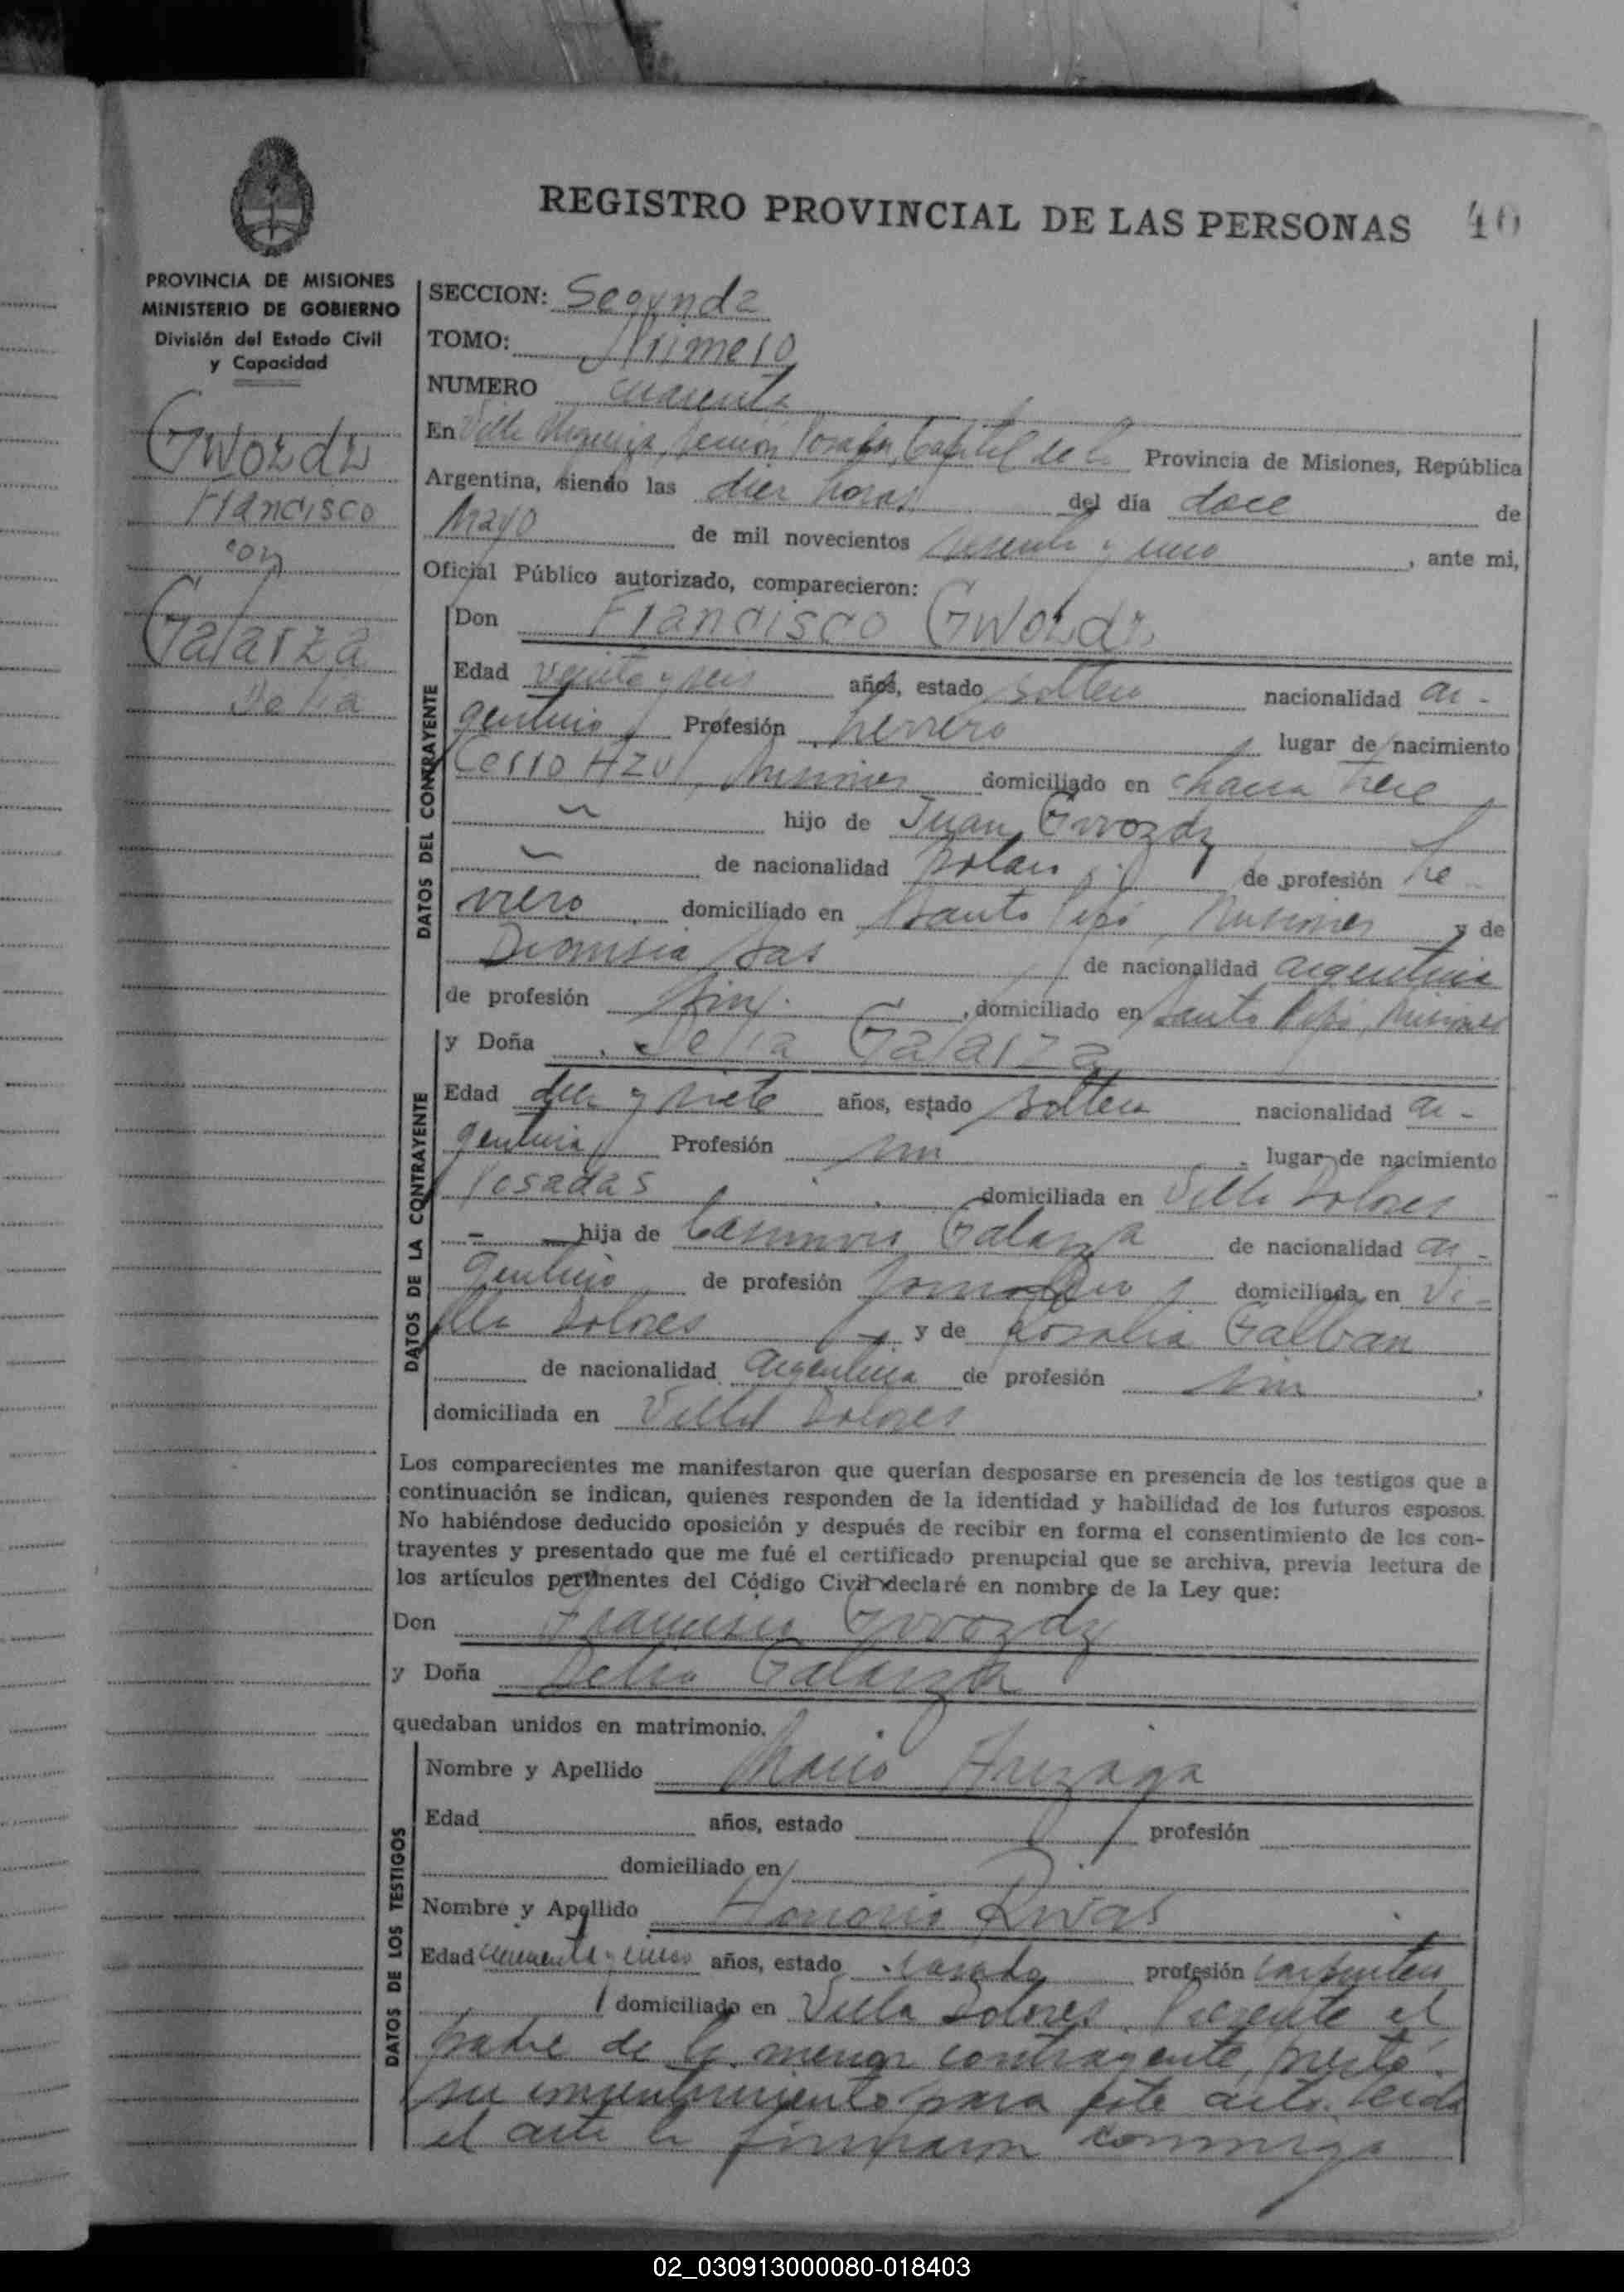 REGISTRO PROVINCIAL DE LAS PERSONAS 40
PROVINCIA DE MISIONES
MINISTERIO DE GOBIERNO
División del Estado Civil
y Capacidad
Gwozdz
Francisco
con
Galarza
Delia
SECCION: Segunda
TOMO: Primero
NUMERO cuarenta
En Villa Urquiza, Posadas, Capital de la Provincia de Misiones, República
Argentina, siendo las diez horas del día doce de
Mayo de mil novecientos sesenta y uno, ante mi,
Oficial Público autorizado, comparecieron:
DATOS DEL CONTRAYENTE
Don Francisco Gwozdz
Edad veinte y seis años, estado soltero nacionalidad ar-
gentino Profesión herrero, lugar de nacimiento
Cerro Azul, Misiones domiciliado en chacra trece
hijo de Juan Gwozdz
de nacionalidad polaco de profesión he-
rrero domiciliado en Santo Pipó, Misiones y de
Dionisia Sas de nacionalidad argentina
de profesión sin, domiciliado en Santo Pipó, Misiones
DATOS DE LA CONTRAYENTE
y Doña Delia Galarza
Edad diez y siete años, estado soltera nacionalidad ar-
gentina Profesión sin, lugar de nacimiento
Posadas domiciliada en Villa Dolores
hija de Casimiro Galarza de nacionalidad ar-
gentino de profesión jornalero, domiciliada en Vi-
lla Dolores y de Rosalia Galban
de nacionalidad argentina de profesión sin,
domiciliada en Villa Dolores
Los comparecientes me manifestaron que querían desposarse en presencia de los testigos que a
continuación se indican, quienes responden de la identidad y habilidad de los futuros esposos.
No habiéndose deducido oposición y después de recibir en forma el consentimiento de los con-
trayentes y presentado que me fué el certificado prenupcial que se archiva, previa lectura de
los artículos pertinentes del Código Civil declaré en nombre de la Ley que:
Don Francisco Gwozdz
y Doña Delia Galarza
quedaban unidos en matrimonio.
DATOS DE LOS TESTIGOS
Nombre y Apellido Mario
Edad años, estado profesión
domiciliado en
Nombre y Apellido Honorio Rivas
Edad años, estado casado profesión carpintero
domiciliado en Villa Dolores. Presente el
padre de la menor contrayente, prestó
su consentimiento para este acto. Leida
el acta la firmaron conmigo
02_030913000080-018403